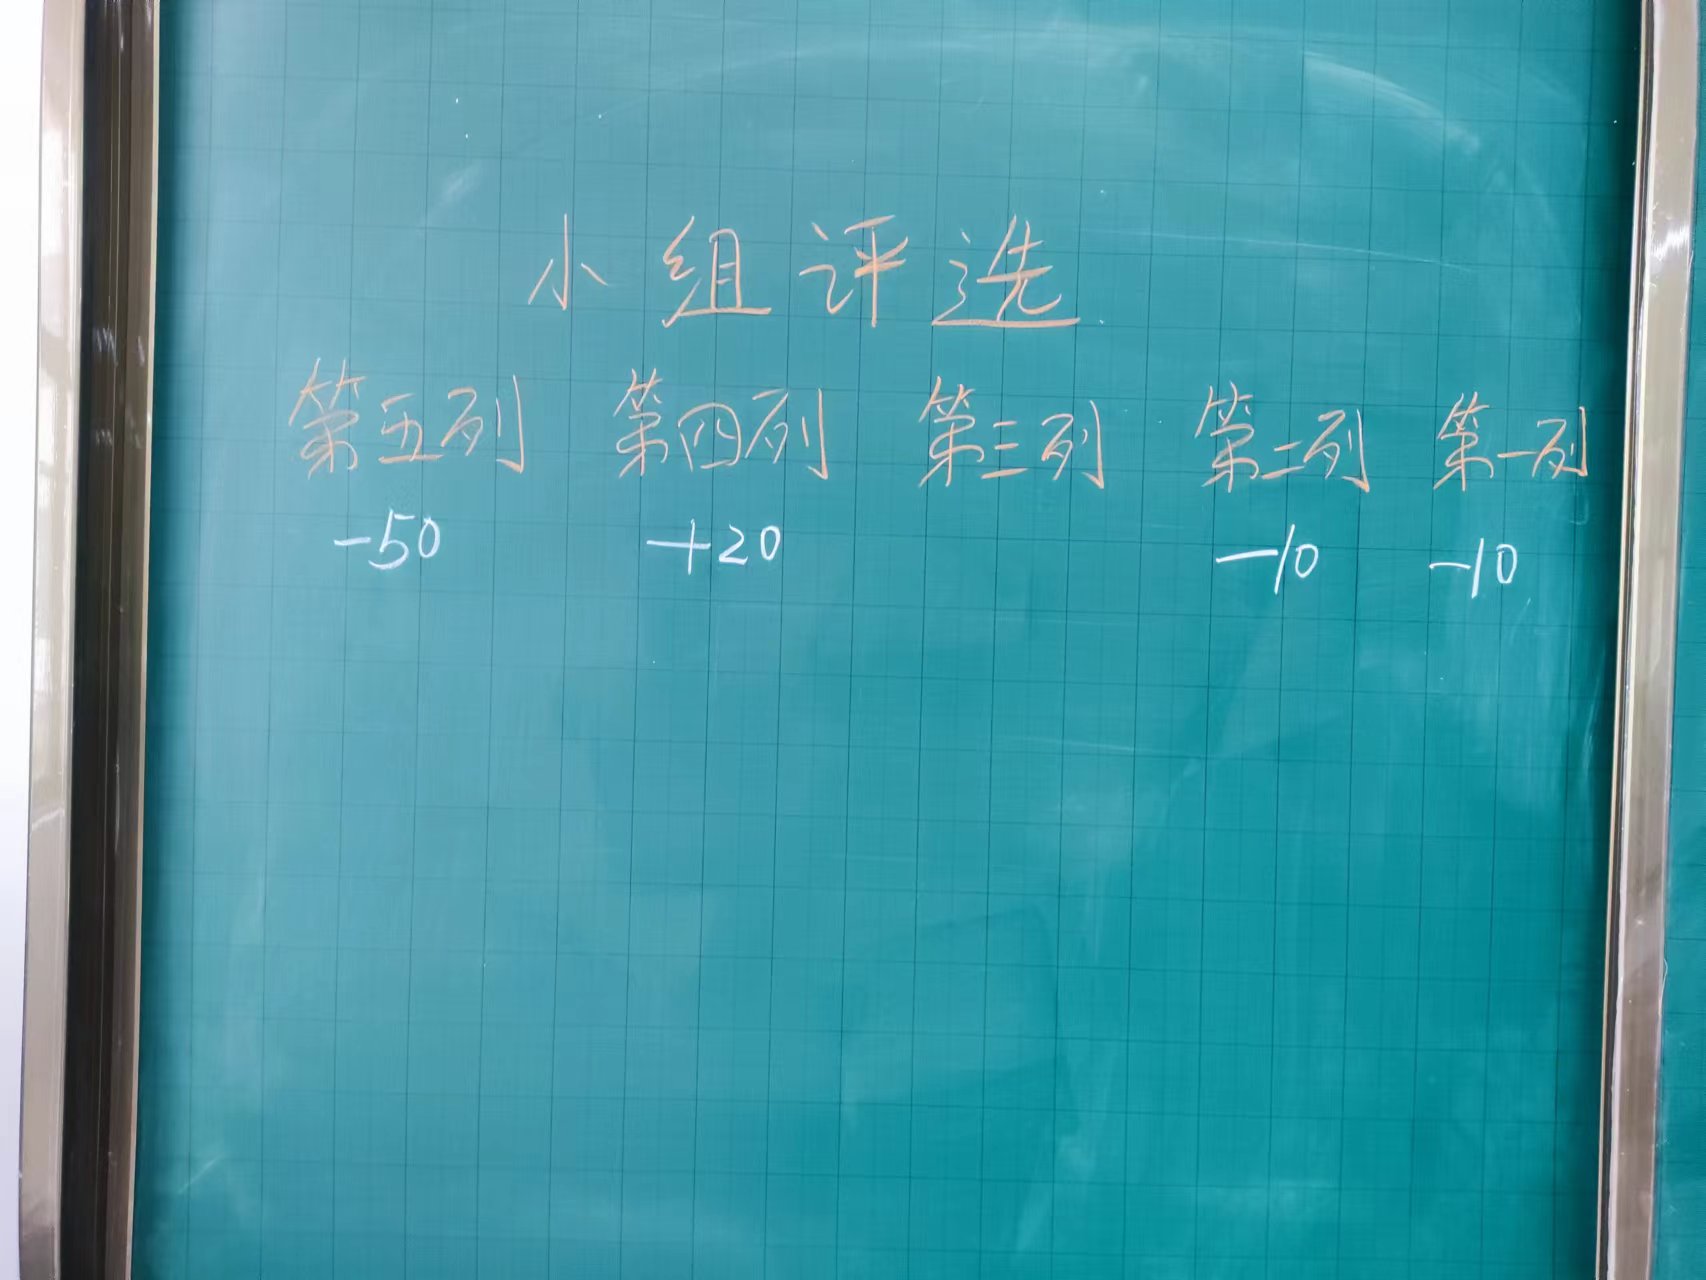 小组评选
第五列 第四列 第三列 第二列 第一列
-50 +20 -10 -10